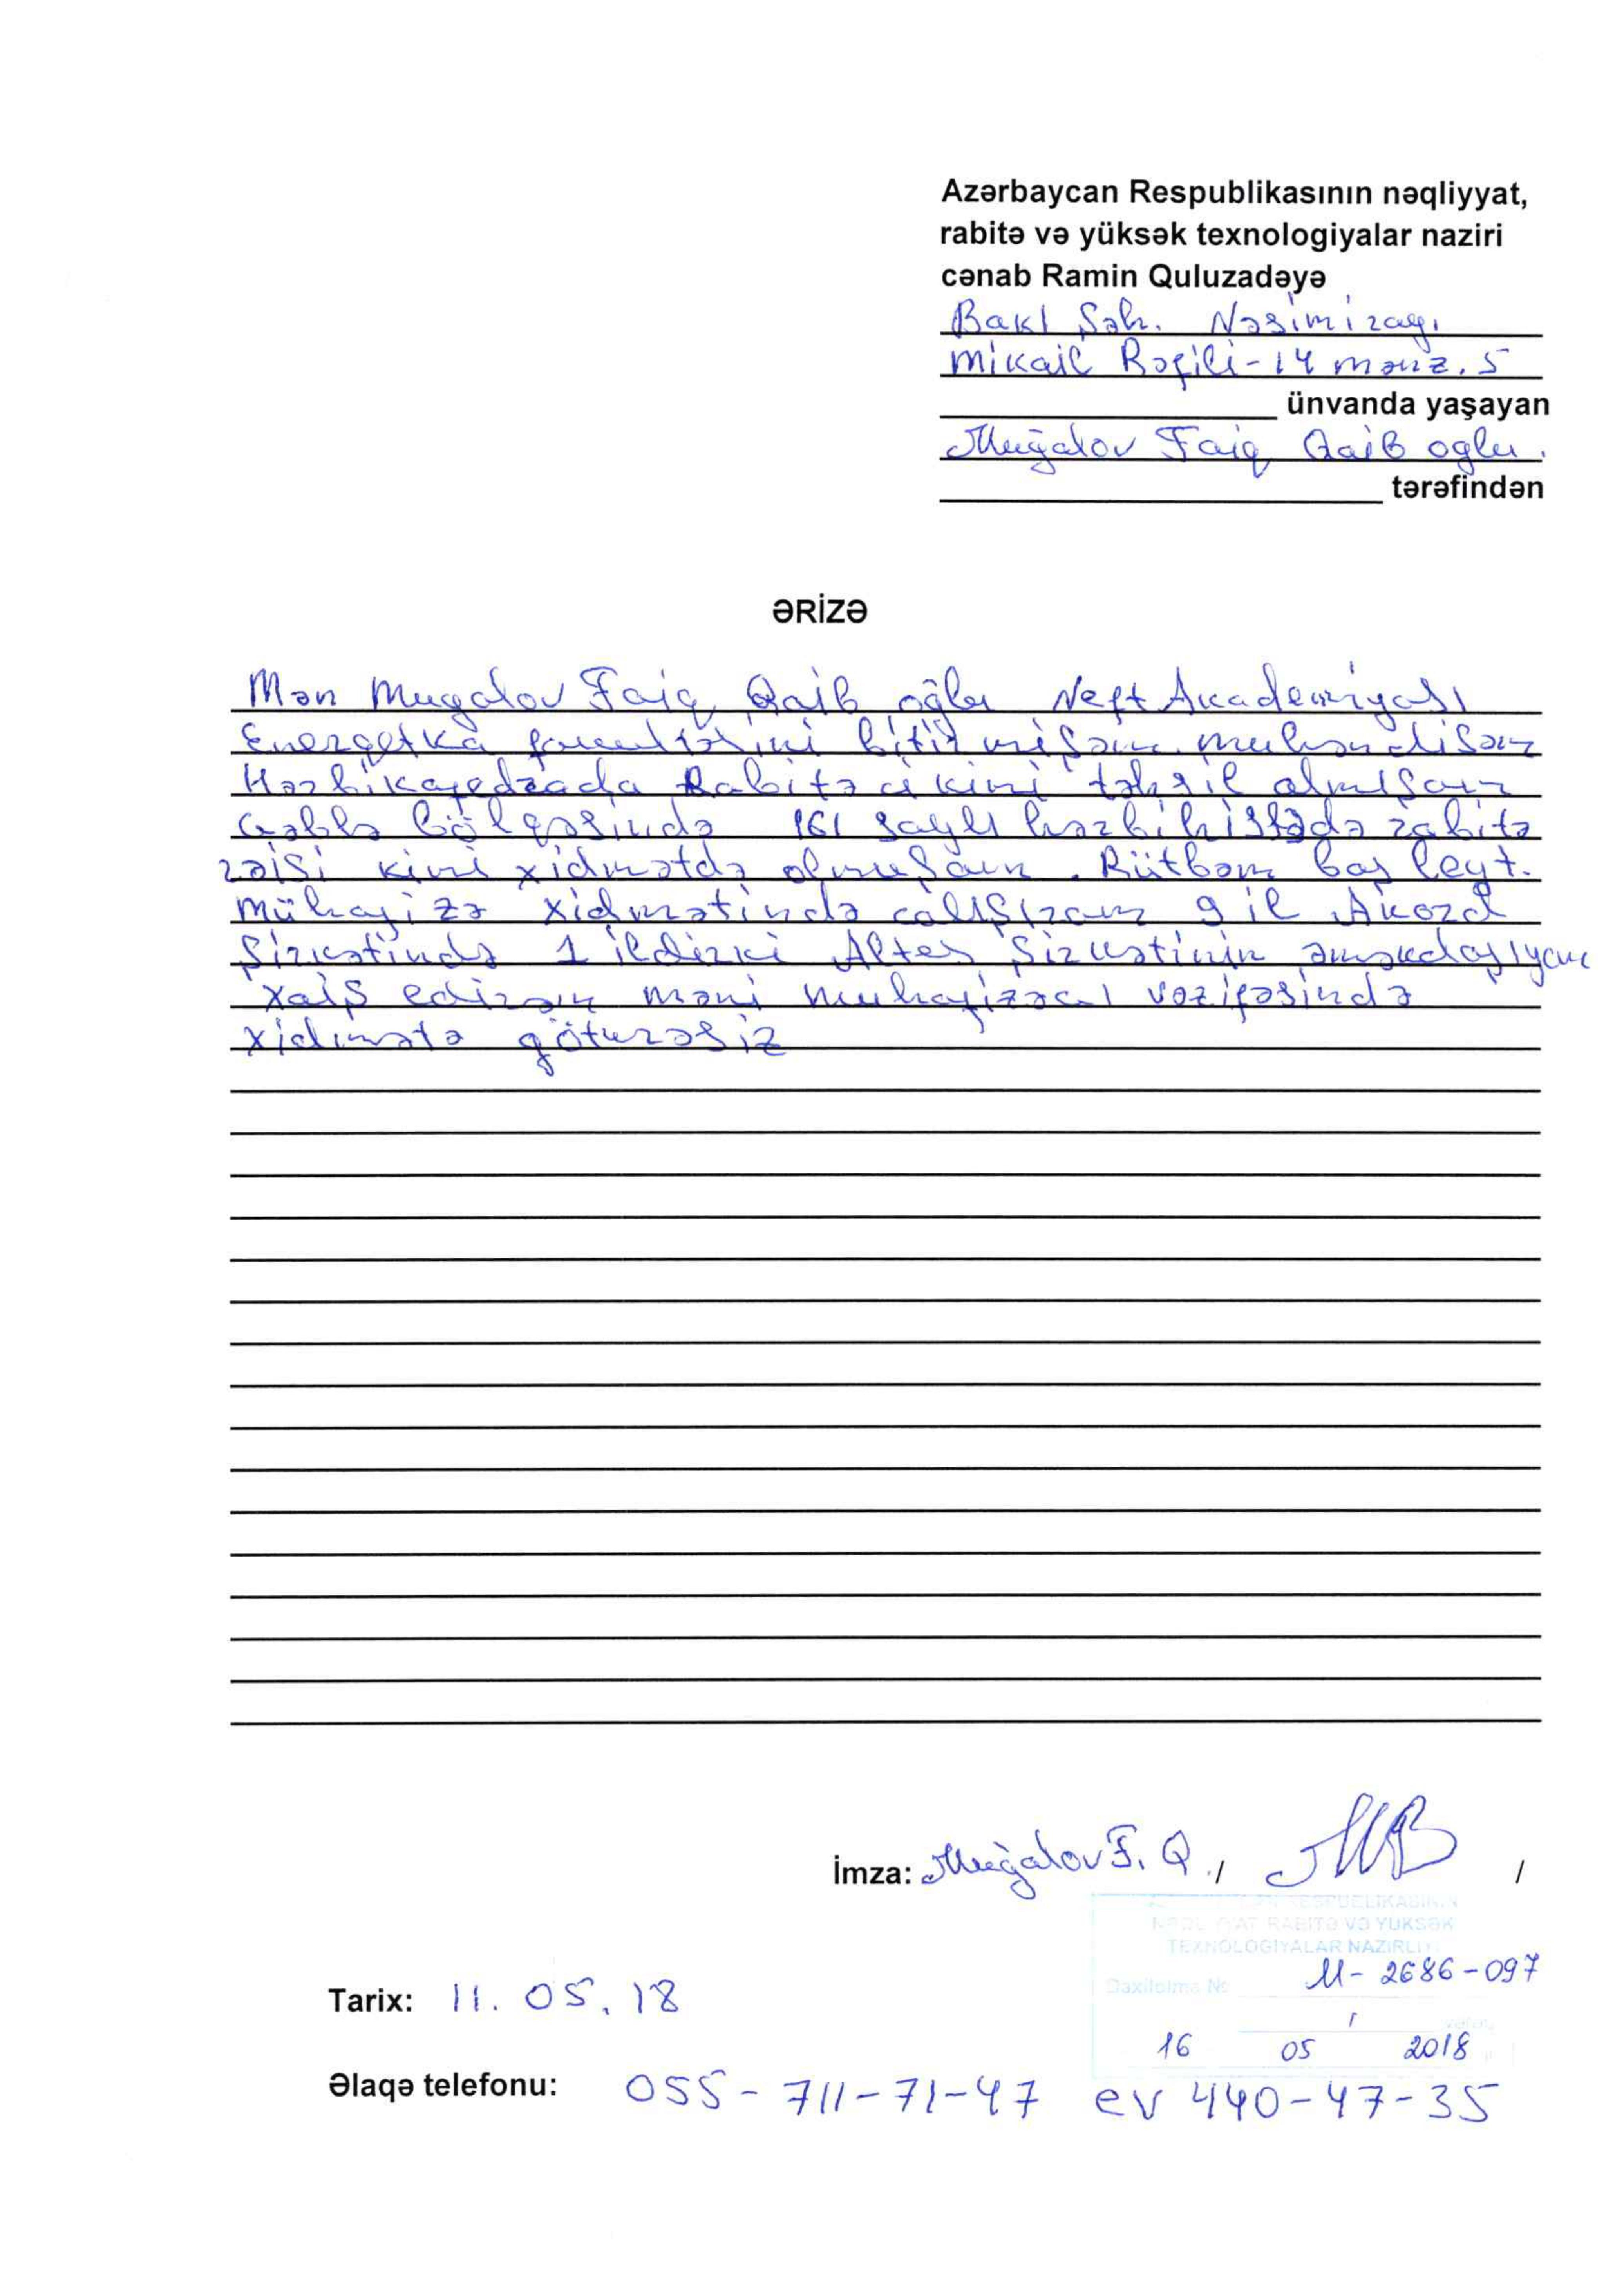 Azərbaycan Respublikasının nəqliyyat,
rabitə və yüksək texnologiyalar naziri
cənab Ramin Quluzadəyə
Bakı Şəh. Nəsimi ray.
Mikail Rəfili-14 mənz. 5
ünvanda yaşayan
Muğalov Faiq Qaib oglu.
tərəfindən
ƏRİZƏ
Mən Mugalov Faiq Qaib oğlu Neft Akademiyası
Energetka fakultəsini bitirmişəm. muhəndisəm
Hərbi kafedrada Rabitəci kimi təhsil almışam
GəbLə bölgəsində 161 saylı hərbi hissədə rabitə
rəisi kimi xidmətdə olmuşam. Rütbəm baş leyt.
Mühafizə xidmətində calışıram 9 il Akord
Şirkətində 1 ildirki Altes Şirkətinin əməkdaşıyam
Xaiş edirəm məni muhafizəcı vəzifəsində
xidmətə götürəsiz
İmza: Muğalov F. Q. / /
RESPUBLİKASININ
RABİTƏ VƏ YÜKSƏK
TEXNOLOGİYALAR NAZİRLİYİ
Daxilolma № M- 2686-097
Tarix: 11. 05. 18
16 05 2018
Əlaqə telefonu: 055-711-71-47 ev 440-47-35